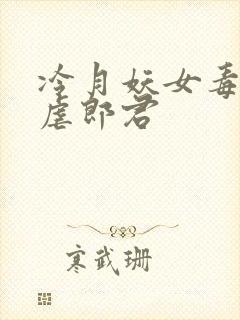 冷月妖女毒
虐郎君
寒武珊